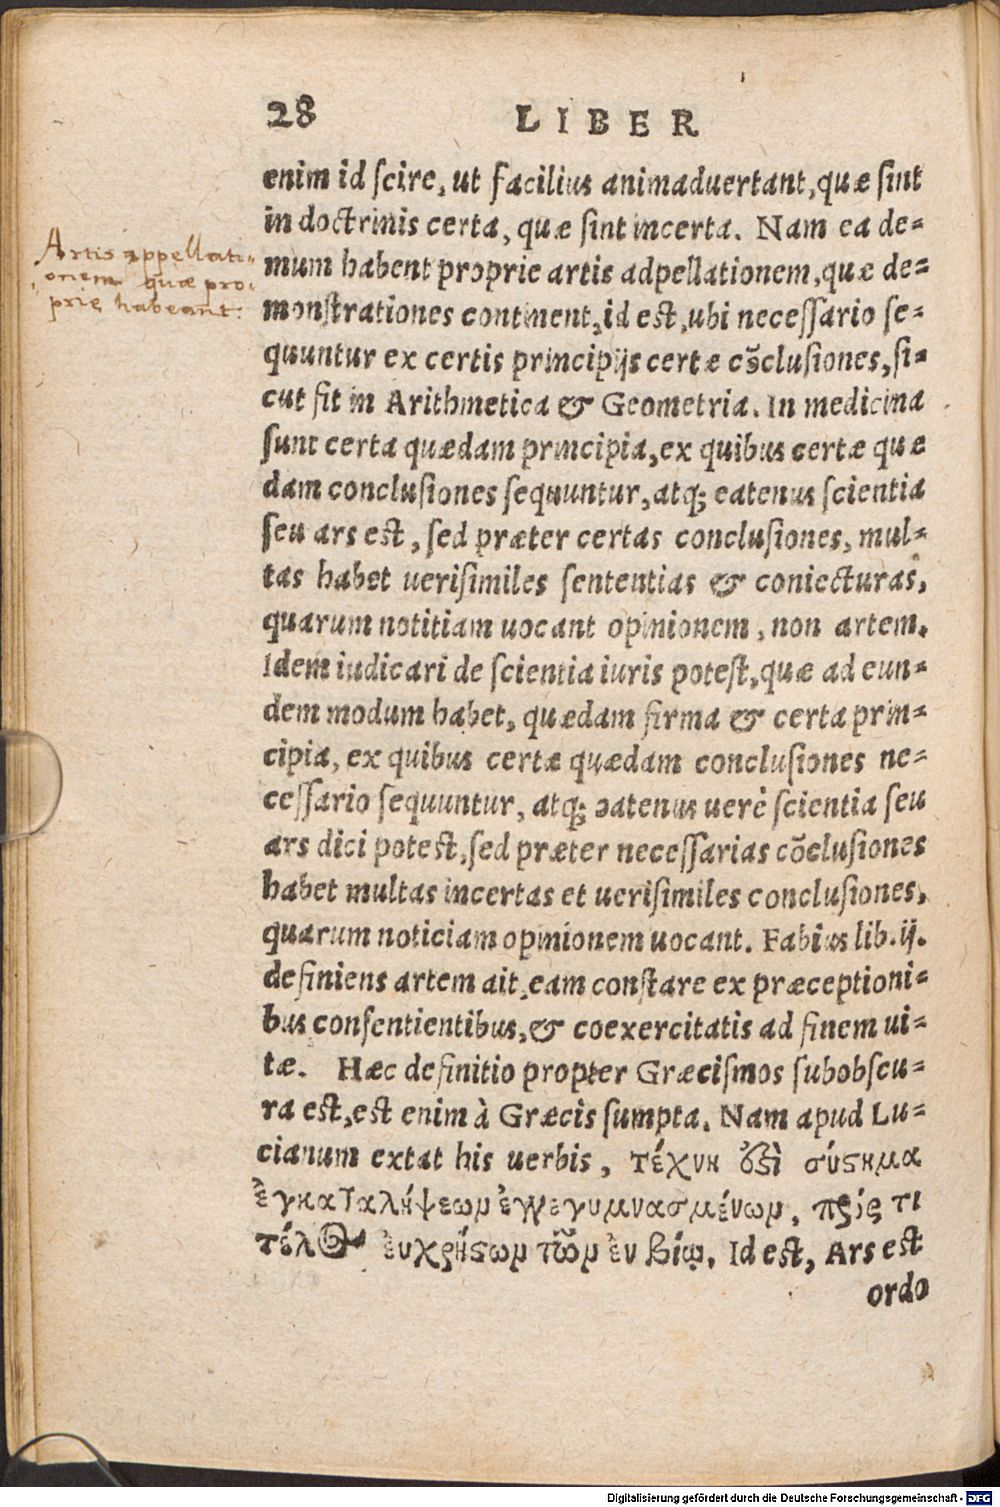 28 LIBER
enim id ſcire, ut facilius animaduertant, quæ ſint
in doctrinis certa, quæ ſint incerta. Nam ea de=
mum habent proprie artis adpellationem, quæ de=
monſtrationes continent, id eſt, ubi neceſſario ſe=
quuntur ex certis principijs certæ cõcluſiones, ſi=
cut fit in Arithmetica & Geometria. In medicina
ſunt certa quædam principia, ex quibus certæ quæ
dam concluſiones ſequuntur, atq; eatenus ſcientia
ſeu ars eſt, ſed præter certas concluſiones, mul=
tas habet ueriſimiles ſententias & coniecturas,
quarum notitiam uocant opinionem, non artem.
Idem iudicari de ſcientia iuris poteſt, quæ ad eun=
dem modum habet, quædam firma & certa prin=
cipia, ex quibus certæ quædam concluſiones ne=
ceſſario ſequuntur, atq; eatenus uerè ſcientia ſeu
ars dici poteſt, ſed præter neceſſarias cõcluſiones
habet multas incertas et ueriſimiles concluſiones,
quarum noticiam opinionem uocant. Fabius lib. ij.
definiens artem ait, eam conſtare ex præceptioni=
bus conſentientibus, & coexercitatis ad finem ui=
tæ. Hæc definitio propter Græciſmos ſubobſcu=
ra eſt, eſt enim à Græcis ſumpta. Nam apud Lu=
cianum extat his uerbis, τέχνη ἐστὶ σύστημα
ἐγκαταλήψεων ἐγγεγυμνασμένων, πρός τι
τέλος εὐχρήστων τῶν ἐν βίῳ. Id eſt, Ars eſt
ordo
Artis appellati=
onem quæ pro=
prie habeant.
Digitalisierung gefördert durch die Deutsche Forschungsgemeinschaft - DFG